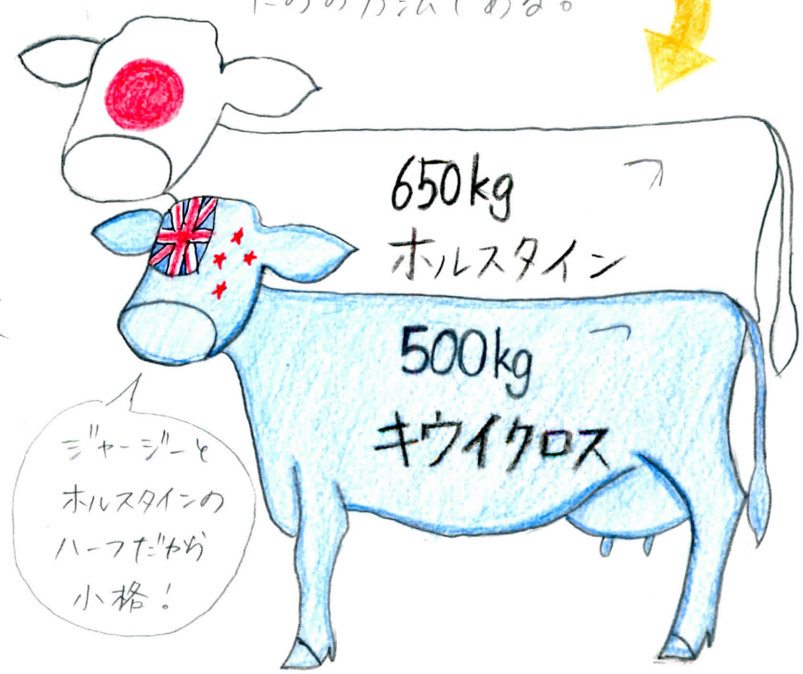 ための方法である。
650kg
ホルスタイン
500kg
キウイクロス
ジャージーと
ホルスタインの
ハーフだから
小格！